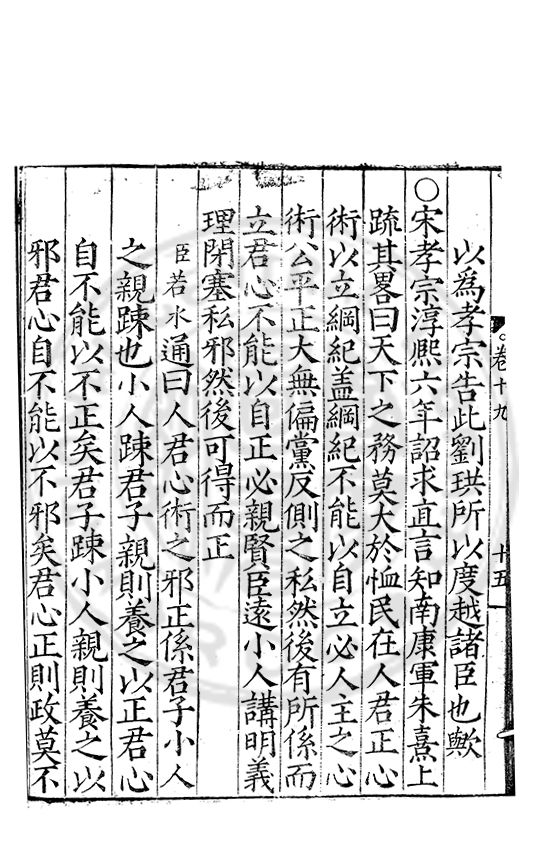 卷十九
十五
以爲孝宗告此劉珙所以度越諸臣也歟
○宋孝宗淳熙六年詔求直言知南康軍朱熹上
疏其畧曰天下之務莫大於恤民在人君正心
術以立綱紀盖綱紀不能以自立必人主之心
術公平正大無偏黨反側之私然後有所係而
立君心不能以自正必親賢臣遠小人講明義
理閉塞私邪然後可得而正
臣若水通曰人君心術之邪正係君子小人
之親踈也小人踈君子親則養之以正君心
自不能以不正矣君子踈小人親則養之以
邪君心自不能以不邪矣君心正則政莫不